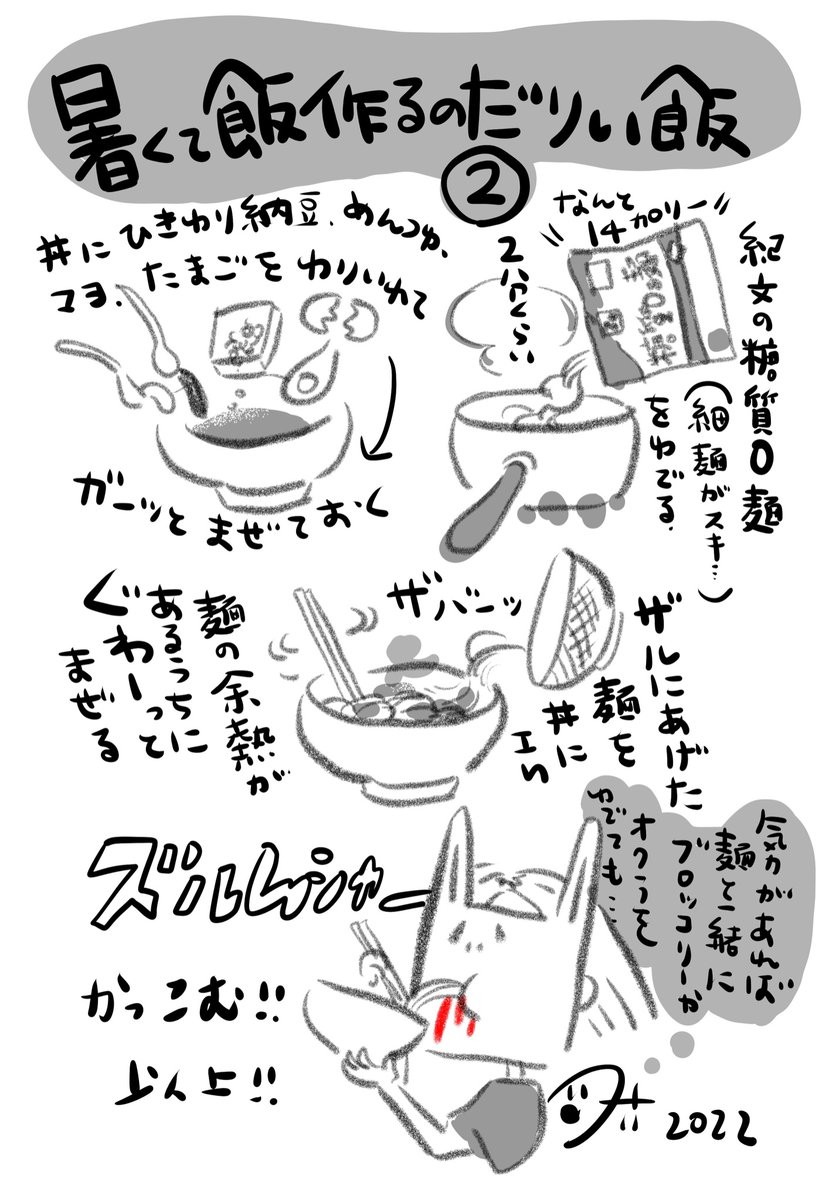 暑くて飯作るのだりい飯
②
紀文の糖質0麺
(細麺がスキ…)
をゆでる.
"なんと
14カロリー"
2分くらい
丼にひきわり納豆、めんつゆ、
マヨ、たまごをわりいれて
ガーッとまぜておく
ザルにあげた
麺を
丼に
IN
ザバーッ
麺の余熱が
あるうちに
ぐわーって
まぜる
気力があれば
麺と一緒に
ブロッコリーか
オクラを
ゆでても…
かっこむ!!
以上!!
2022